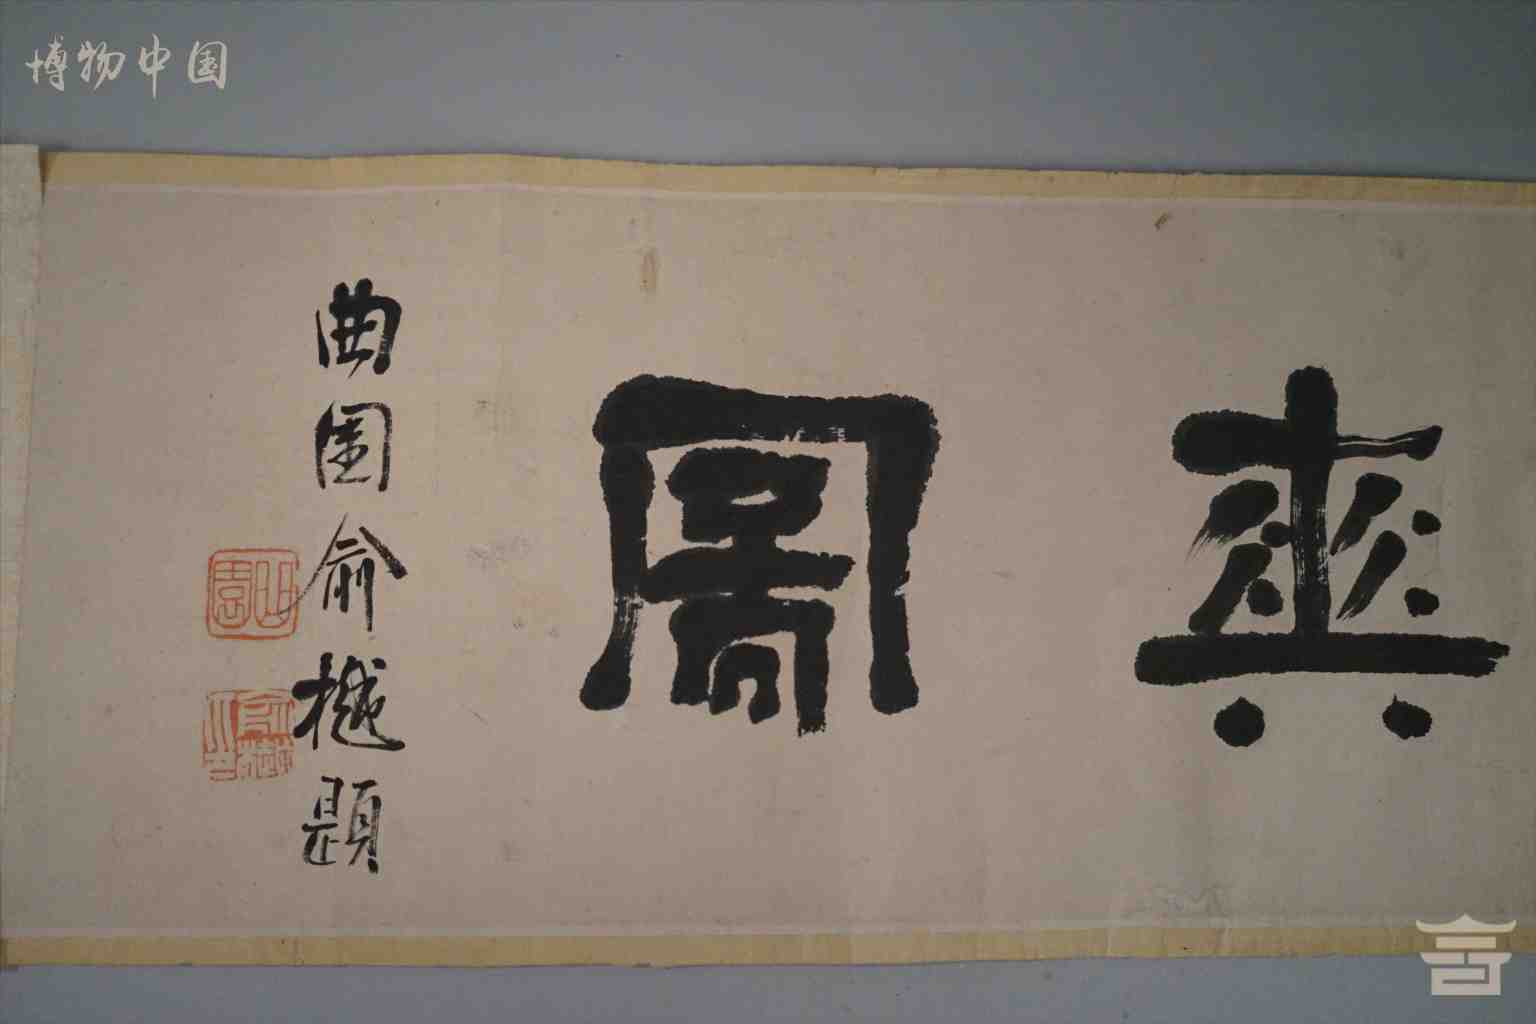 博物中国
圖
曲園俞樾題
曲園